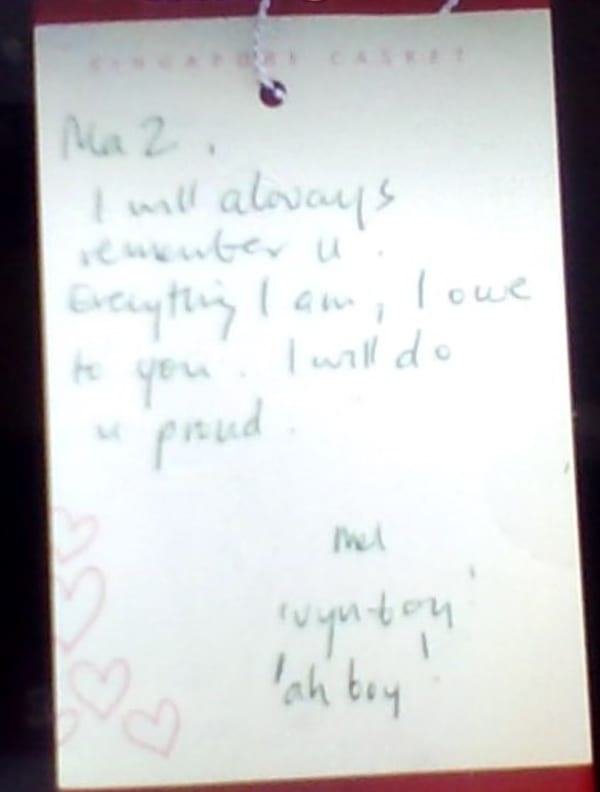 SINGAPORE CASKET
Ma 2.
I will always
remember u.
Everything I am, I owe
to you. I will do
u proud.
Mel
'vyn-boy'
'ah boy'